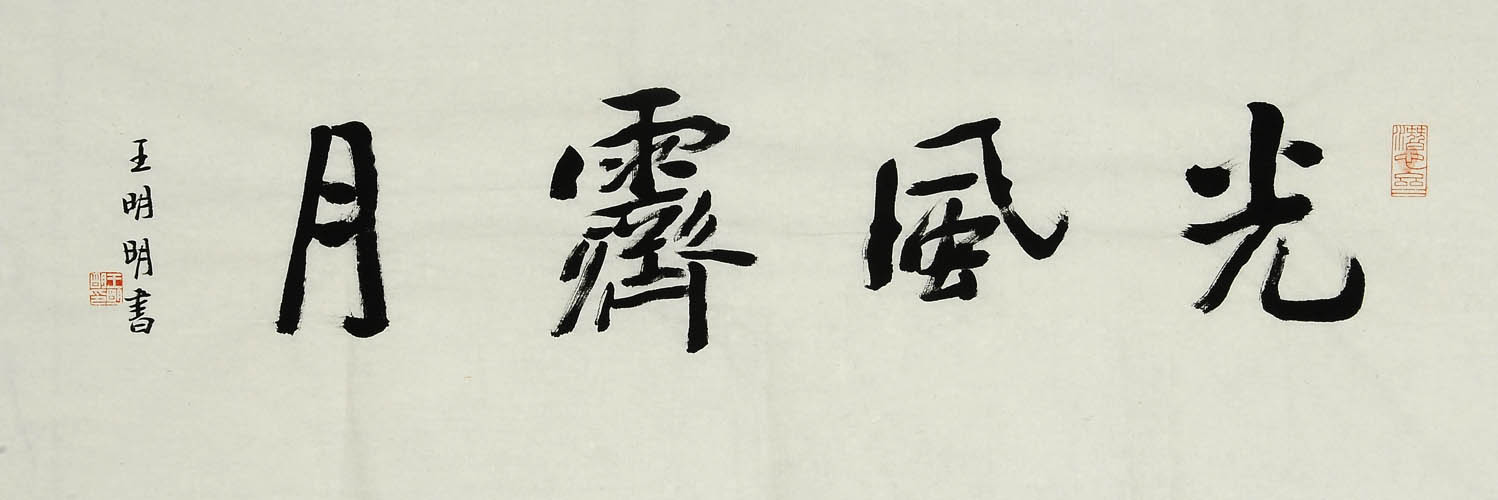 光風霽月
王明明書